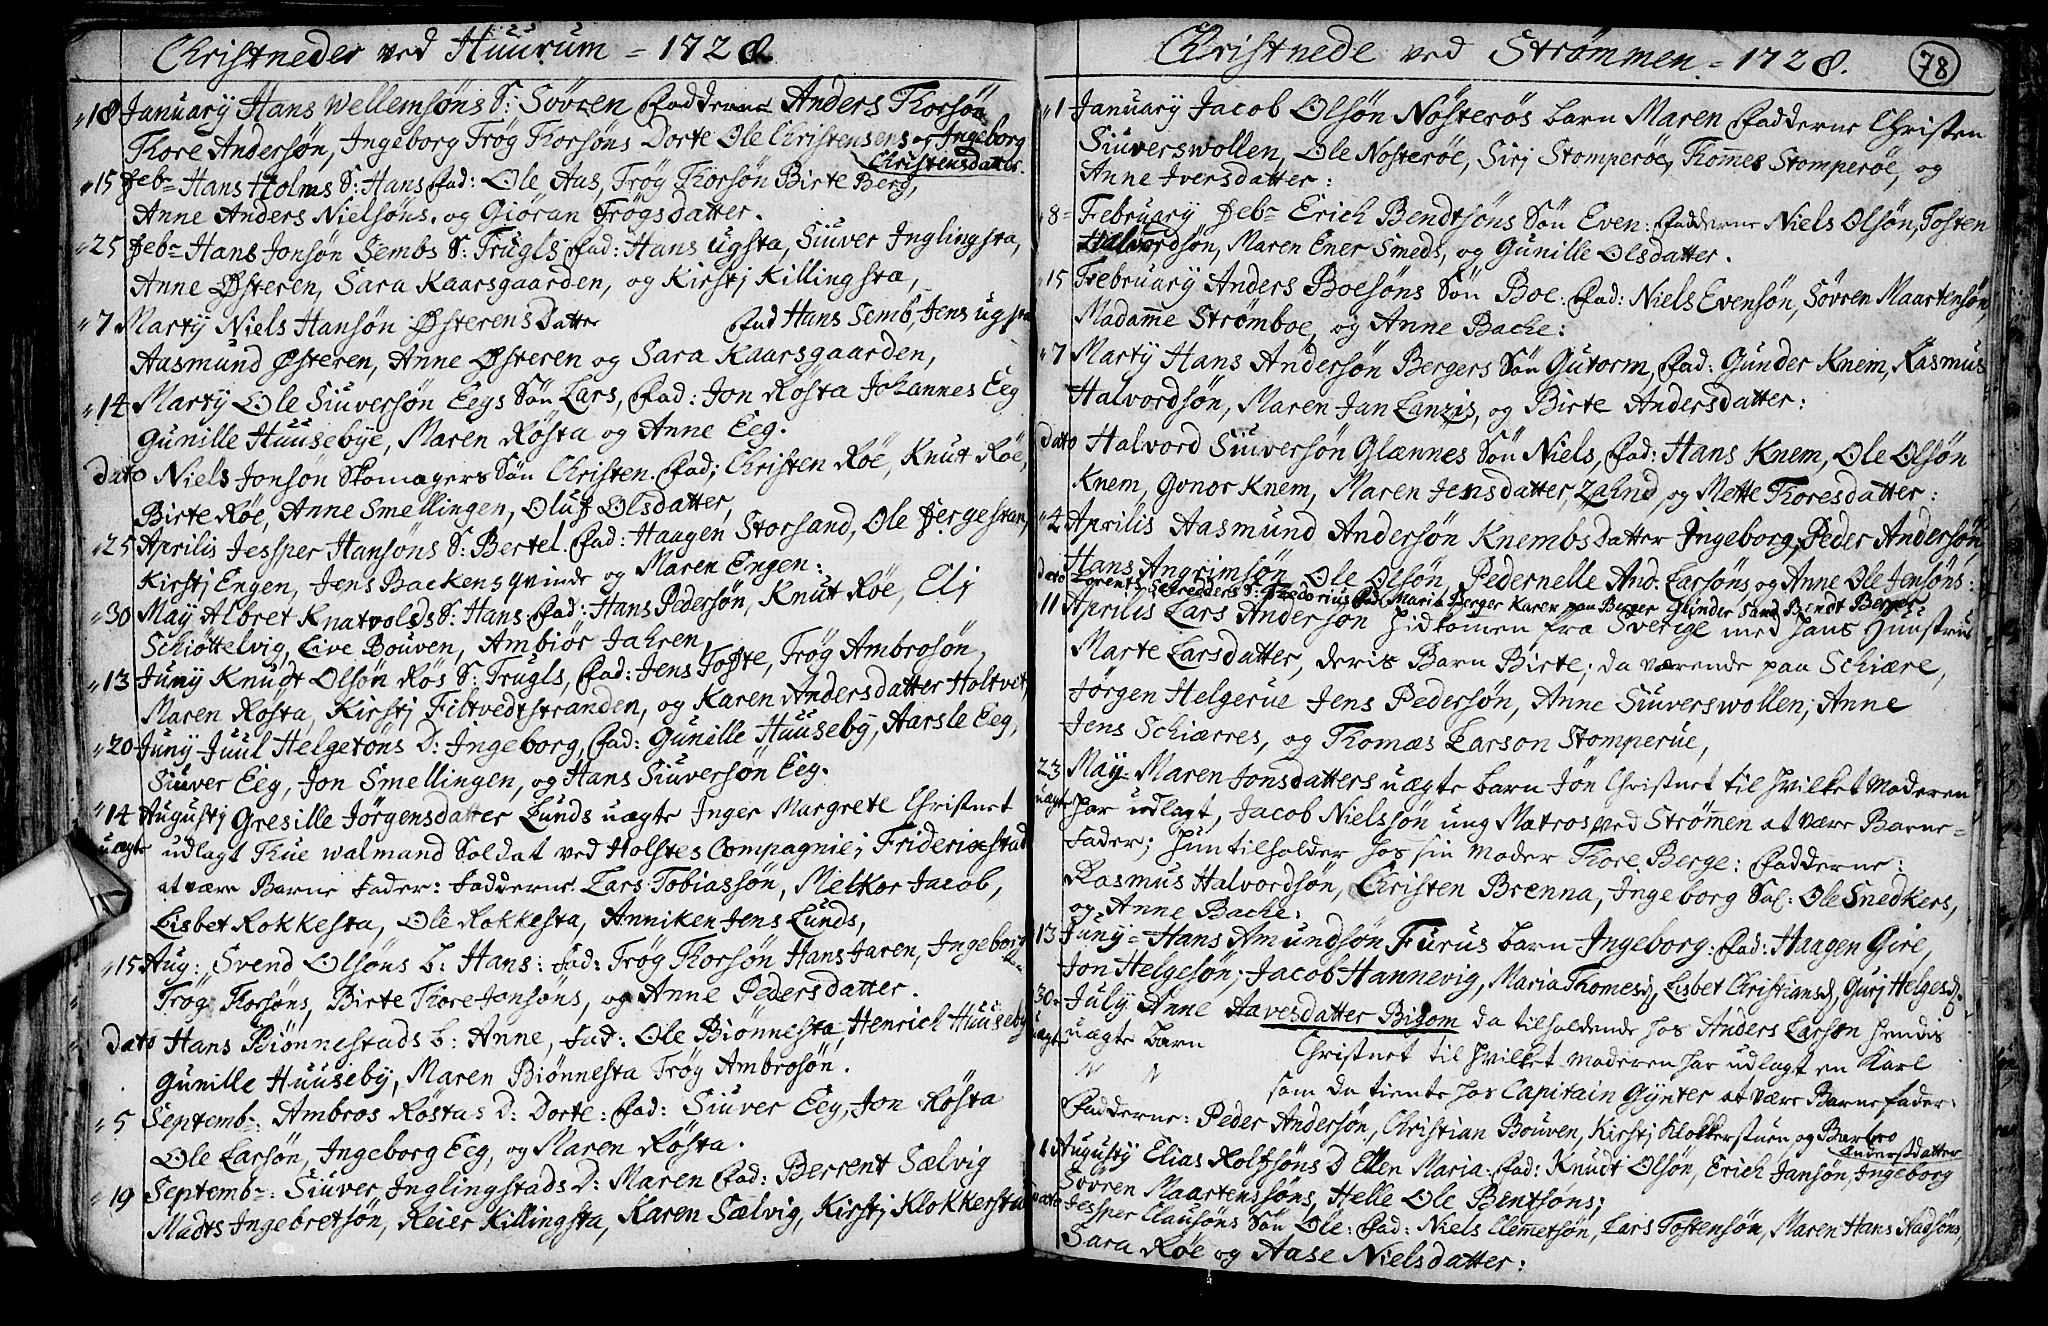 Christneder ved Huurum = 1728
"18 January Hans Wellemsøns S: Søvren Fadderne Anders Thorsøn
Thore Andersøn, Ingeborg Trøg Thorsøns Dorte Ole Christensens og Ingeborg
Christensdatter.
"15 Febr Hans Holms S: Hans Fad: Ole Aas, Trøg Thorsøn Birte Berg,
Anne Anders Nielsøns, og Giøran Trøgsdatter.
"25 Febr Hans Jonsøn Sembs S: Trugls Fad: Hans Ugsta, Siuver Inglingsta,
Anne Østeren, Sara Kaarsgaarden, og Kirstj Killingsta,
"7 Marty Niels Hansøn Østerens Datter Fad Hans Semb, Jens Ugsta
Aasmund Østeren, Anne Østeren og Sara Kaarsgaarden,
"14 Marty Ole Siuversøn Eegs Søn Lars, Fad: Jon Røsta Johannes Eeg
Gunille Huusebye, Maren Røsta og Anne Eeg.
Dato Niels Jonsøn Skomagers Søn Christen. Fad; Christen Røe, Knut Røe,
Birte Røe, Anne Smellingen, Oluf Olsdatter,
"25 Aprilis Jessper Hansøns S: Bertel. Fad: Haagen Storsand, Ole Fergestan,
Kirstj Engen, Jens Backens qvinde og Maren Engen:
"30 May Albret Knatvolds S: Hans Fad: Hans Pedersøn, Knut Røe, Elj
Schiøttelvig, Live Bouven, Ambiør Jahren,
"13 Juny Knudt Olsøn Røs S: Trugls, Fad: Jens Tofte, Trøg Ambrosøn,
Maren Røsta, Kirstj Filtvedtstranden, og Karen Andersdatter Holtvet,
"20 Juny Juul Helgesøns D: Ingeborg, Fad: Gunille Huuseby, Aarsle Eeg,
Siuver Eeg, Jon Smellingen, og Hans Siuversøn Eeg.
"14 Augustj Gresille Jørgensdatter Lunds uægte Inger Margrete Christnet
uægte udlagt Thue Walmand Soldat ved Holstes Compagnie; Friderichstad
at være Barne Fader: Fadderne Lars Tobiassøn, Melkor Jacob,
Lisbet Rokkesta, Ole Rokkesta, Anniken Jens Lunds,
"15 Aug: Svend Olsøns b: Hans: Fad: Trøg Thorsøn Hans Jaren, Ingeborg
Trøg Thorsøns, Birte Thore Jonsøns, og Anne Pedersdatter.
Dato Hans Biønnestads b: Anne, Fad: Ole Biønnesta, Henrich Huuseby
Gunille Huuseby, Maren Biønnesta Trøg Ambrosøn.
"5 Septembr: Ambros Røstas D: Dorte: Fad: Siuver Eeg, Jon Røsta
Ole Larsøn, Ingeborg Eeg, og Maren Røsta.
"19 Septembr: Siuver Inglingstads D: Maren Fad: Berrent Sælvig
Madts Ingebretsøn, Reier Killingsta, Karen Sælvig, Kirstj Klokkerstuen
Christnede ved Strømmen = 1728.
78
"1 January Jacob Olsøn Nøsterøs Barn Maren Fadderne Christen
Siuverswollen, Ole Nosterøe, Sirj Stomperøe, Thomes Stomperøe, og
Anne Iversdatter:
"8= February Febr Erich Bendtsøns Søn Even: Fadderne Niels Olsøn, Tosten
Halvordsøn, Maren Ener Smeds, og Gunille Olsdatter.
15 February Anders Boesøns Søn Boe: Fad: Niels Evensøn, Søvren Maartensøn,
Madamme Strømboe, og Anne Bache:
"7 Marty Hans Andersøn Bergers Søn Gutorm, Fad: Gunder Knem, Rasmus
Halvordsøn, Maren Jan Lanzis, og Birte Andersdatter:
Dato Halvord Siuversøn Glænnes Søn Niels, Fad: Hans Knem, Ole Olsøn
Knem, Gonor Knem, Maren Jensdatter, Zahnd, og Mette Thoresdatter:
"2 Aprilis Aasmund Andersøn Knembs Datter Ingeborg, Peder Andersøn
Hans Angrimsøn, Ole Olsøn, Pedernelle And: Larsøns og Anne Ole Jensøns:
dato Lorents Schredders S: Fredorius Fad: Maria Berger Karen paa Berger Gunder Sand Bendt Berger
11 Aprilis Lars Andersøn hidkomen fra Sverige med hans Huustrue
Marte Larsdatter, deris Barn Birte; da værende paa Schiære,
Jørgen Helgerue Jens Pedersøn, Anne Siuverswollen; Anne
Jens Schiærres, og Thomæs Larson Stomperue,
23 May= Maren Jonsdatters uægte Barn Jøn Christnet til hvilket Moderen
uægte har udlagt, Jacob Nielssøn ung Matros ved Strømen at være Barne=
Fader; hun tilholder hos sin Moder Thore Berge: Fadderne:
Rasmus Halvordsøn, Christen Brenna, Ingeborg Sal: Ole Snedkers,
og Anne Bache:
13 Juny= Hans Amundsøn Furus Barn Ingeborg: Fad: Haagen Gire,
Jon Helgesøn; Jacob Hannevig, Maria Thomesd, Lisbet Christiansd, Gurj Helgesd.
30= July Anne Aavesdatter Bigom da tilholdende hos Anders Larsøn hendis
uægte uægte Barn Christnet til hvilket Moderen har udlagt en Karl
som da tiente hos Capitain Gynter at være Barne fader:
Fadderne: Peder Andersøn, Christian Bouven, Kirstj Klokkerstuen og Barbro
Andersdatter
1 Augusty Elias Rolfsøns D Ellen Maria: Fad: Knudt Olsøn, Erich Jansøn, Ingeborg
Søvren Maartenssøns, Helle Ole Bentsøns;
Dato Jesper Clausøns Søn Ole: Fad: Niels Clemetsøn, Lars Tostensøn, Maren Hans Aadsøns,
Sara Røe og Aase Nielsdatter: